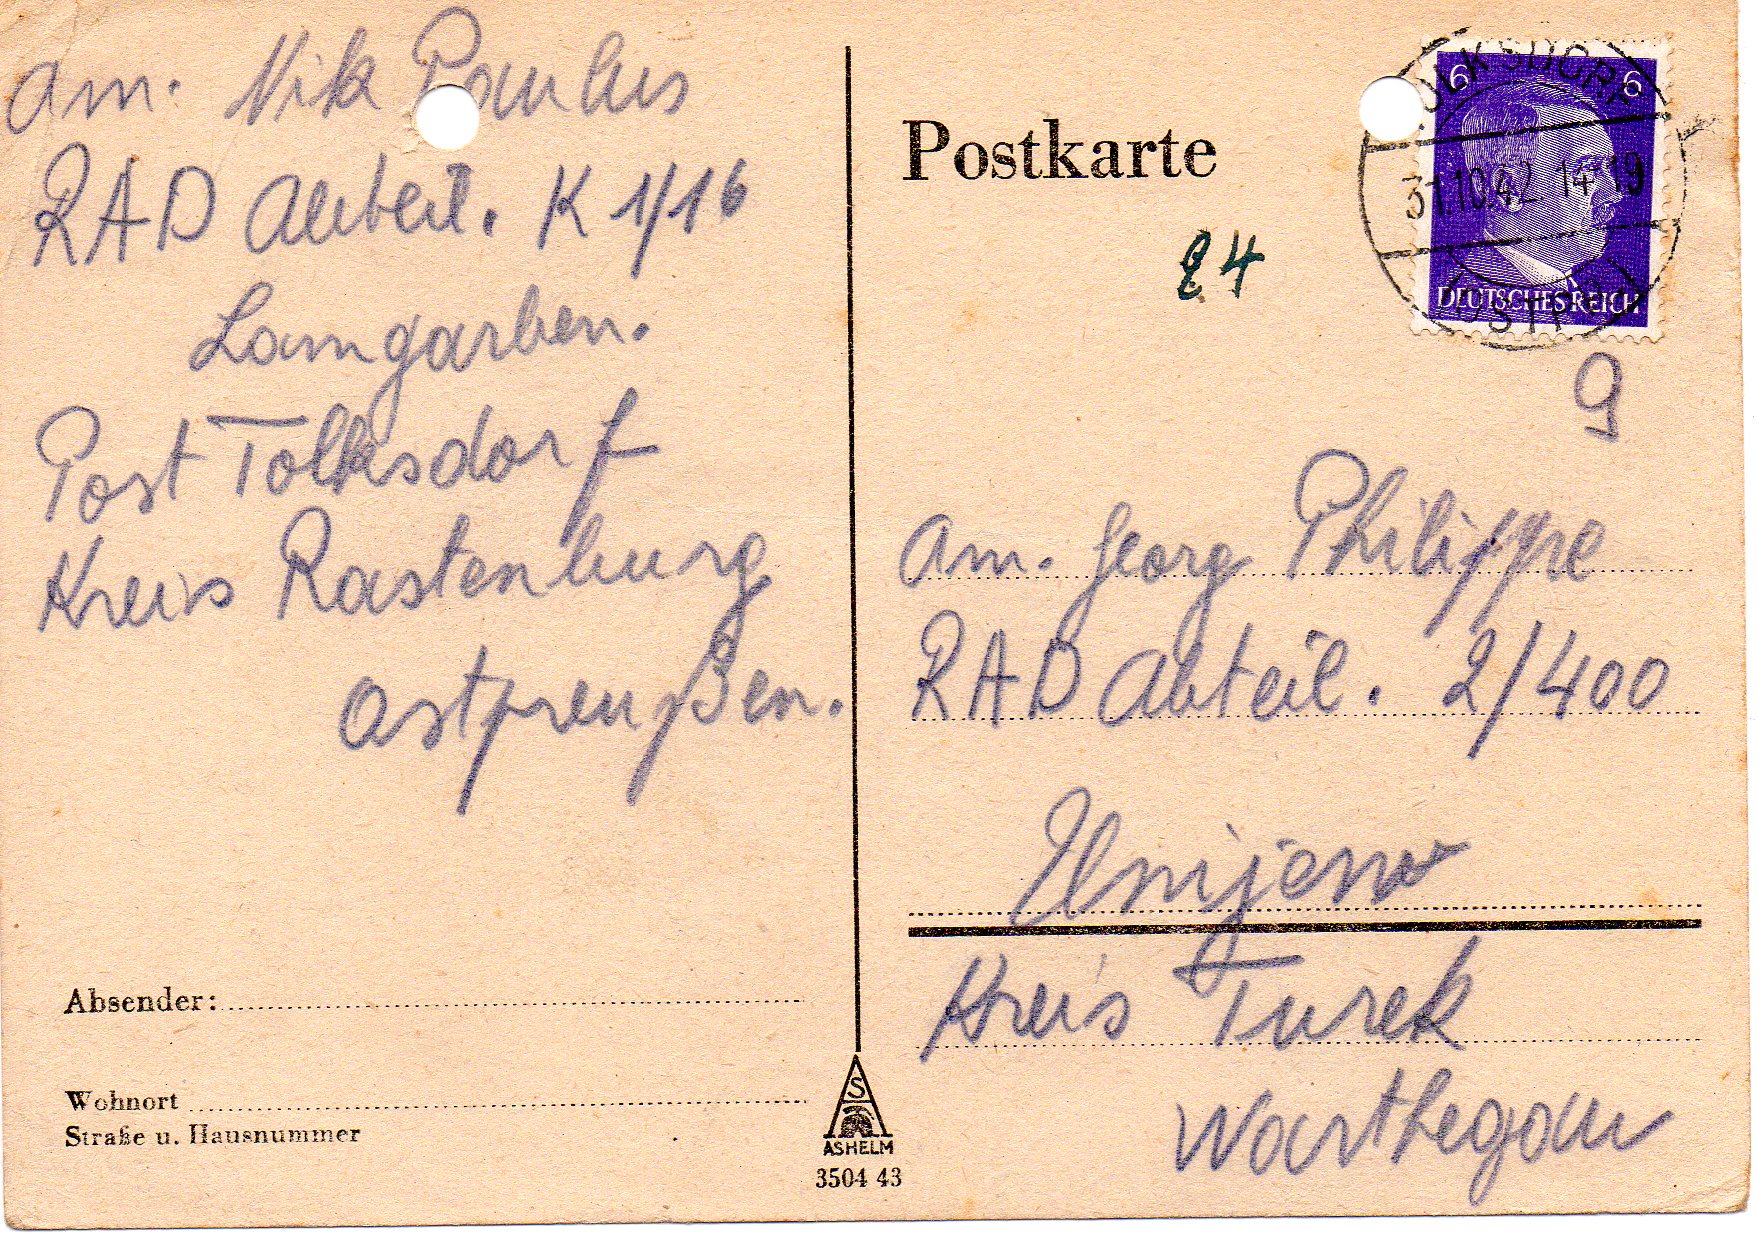 am. Nik Paulus
RAD Abteil. K 1/16
Lamgarben.
Post Tolksdorf
Kreis Rastenburg
Ostpreußen.
Absender:
Wohnort
Straße u. Hausnummer
S
ASHELM
3504 43
Postkarte
24
6 6
DEUTSCHES REICH
TOLKSDORF
31.10.42 14-19
(OSTPR)
9
am. Georg Philippe
RAD Abteil. 2/400
Kreis Turek
Warthegau